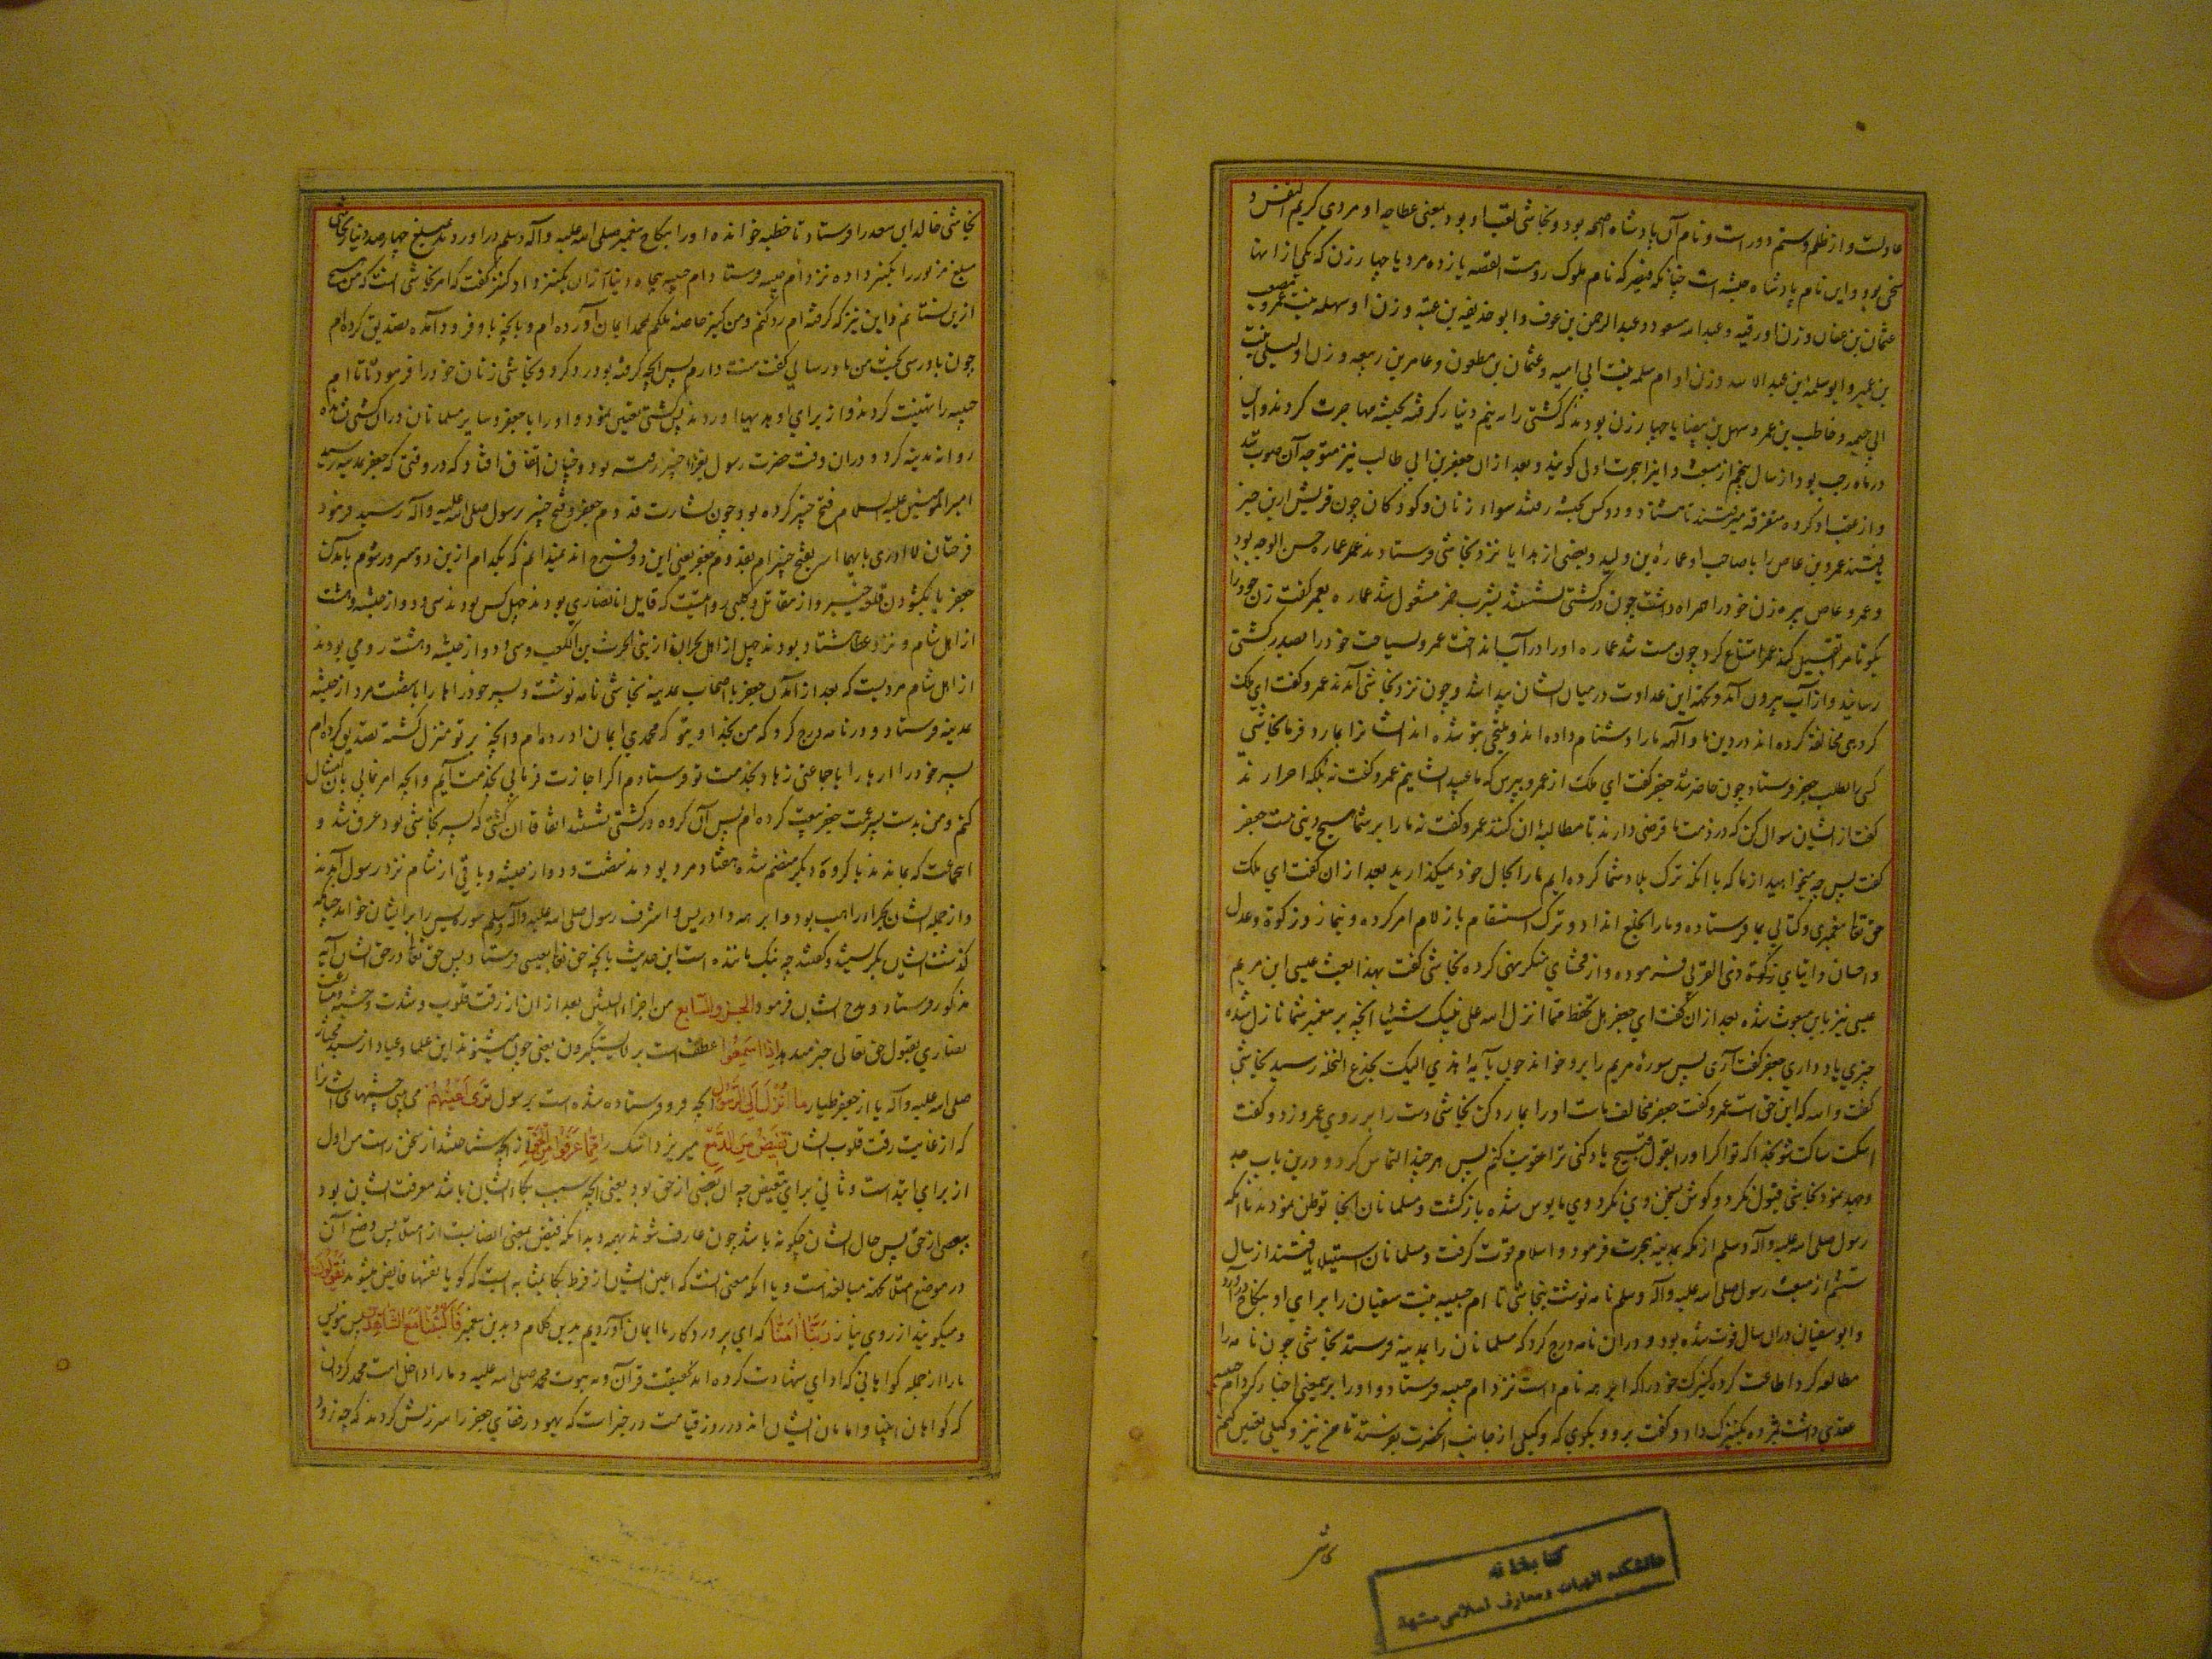 عادلست و از ظلم و ستم دور است و نام آن پادشاه اصحمه بود و نجاشی لقب او بود بمعنی عطا چه او مردی کریم النفس و
سخی بود و این نام پادشاه حبشه است چنانکه قیصر که نام ملوک روم است القصه یازده مرد با چهار زن که یکی از اینها
عثمان بن عفان و زن او رقیه و عبد الله مسعود و عبد الرحمن بن عوف و ابو حذیفه بن عتبه و زن او سهله بنت عمرو و مصعب
بن عمیر و ابو سلمه ابن عبد الاسد و زن او ام سلمه بنت ابی امیه و عثمان بن مظعون و عامر بن ربیعه و زن او لیلی بنت
ابی حیمه و خاطب بن عمرو سهل بن بیضا با چهار زن بودند که کشتی را به نیم دینار کرفته بحبشه مهاجرت کردند و این
در ماه رجب بود از سال پنجم از مبعث و اینرا هجرت اولی کویند و بعد ازان جعفر بن ابی طالب نیز متوجه آن صوب شد
و از عقب او کروه متفرقه میرفتند تا هشتاد و دو کس بحبشه رفتند سوای زنان و کودکان چون قریش ازین خبر
یافتند عمرو بن عاص را با صاحب او عماره بن ولید و بعضی از هدایا نزد نجاشی فرستادند عماره حسن الوجه بود
و عمرو عاص پیره زن خود را همراه داشت چون در کشتی نشستند بشرب خمر مشغول شد عماره بعمر گفت زن خود را
بکو تا مرا تقبیل کند عمر امتناع کرد چون مست شد عماره او را در آب انداخت عمرو بسیاحت خود را بصدر کشتی
رسانید و از آب بیرون آمد و بجهة این عداوت در میان ایشان پیدا شد و چون نزد نجاشی آمدند عمرو کفت ای ملک
کروهی مخالفة کرده اند در دین ما و آلهه ما را دشنام داده اند و ملتجی بتو شده اند ایشانرا بما رد فرما نجاشی
کس بطلب جعفر فرستاد چون حاضر شد جعفر کفت ای ملک از عمرو بپرس که ما عبید ایشانیم عمرو کفت نه بلکه احرارند
کفت از ایشان سوال کن که در ذمت ما قرضی دارند تا مطالبهٔ ان کنند عمرو کفت نه ما را بر شما هیچ دینی نیست جعفر
کفت پس چه میخواهید از ما که با انکه ترک بلاد شما کرده ایم ما را بحال خود نمیکذارید بعد ازان کفت ای ملک
حق تعالی پیغمبری و کتابی بما فرستاده و ما را بخلع انداد و ترک استقسام بازلام امر کرده و بنماز و زکوة و عدل
و احسان و ایتای ذی القربی فرموده و از فحشای و منکر نهی کرده نجاشی کفت بهذا بعث عیسی ابن مریم
عیسی نیز باین مبعوث شده بعد ازان کفت ای جعفر هل تحفظ مما انزل الله علی نبیک شیئا انچه بر پیغمبر شما نازل شده
چیزی یاد داری جعفر کفت آری پس سورهٔ مریم را برو خواند چون بآیهٔ و هزی الیک بجذع النخله رسید نجاشی
کفت والله که این حق است عمرو کفت جعفر مخالف ماست او را بما رد کن نجاشی دست را بر روی عمرو زد و کفت
اسکت ساکت شو بخدا که تو اکر او را بقول قبیح یاد کنی ترا عقوبت کنم پس هر چند التماس کرد و درین باب جد
و جهد نمود نجاشی قبول نکرد و کوش بسخن وی نکرد و وی مایوس شده بازکشت و مسلمانان انجا توطن نمودند تا انکه
رسول صلی الله علیه و آله و سلم از مکه بمدینه هجرت فرمود و اسلام قوت کرفت و مسلمانان استیلا یافتند از سال
ششم از مبعث رسول صلی الله علیه و آله و سلم نامه نوشت بنجاشی تا ام حبیبه بنت سفیان را برای او بنکاح درآورد
و ابو سفیان دران سال فوت شده بود و دران نامه درج کرد که مسلمانان را بمدینه فرستد نجاشی چون نامه را
مطالعه کرد اطاعت کرد کنیزک خود را که ابرهه نام داشت نزد ام حبیبه فرستاد و او را بر ین معنی اخبار کرد ام حبیبه
عقدی داشت بکنیزک داد و کفت برو و بکوی که وکیلی از جانب الحضرت بفرستد تا من نیز وکیلی تعیین کنم
کتابخانه
دانشکده الهیات و معارف اسلامی مشهد
نجاشی خالد ابن سعد را فرستاد تا خطبه خوانده او را بنکاح پیغمبر صلی الله علیه و آله و سلم دراوردند بمبلغ چهارصد دینار نجاشی
مبلغ مزبور را بکنیز داده نزد ام حبیبه فرستاد ام حبیبه پنجاه دینار ازان بکنیز داد کنیز کفت که امر نجاشی انست که من هیچ
ازین نستانم و این نیز که کرفته ام رد کنم و من کنیز خاصهٔ ملکم بمحمد ایمان آورده ام و بانچه باو فرود آمده تصدیق کرده ام
چون باو رسی تحیت من باو رسانی کفت منت دارم پس انچه کرفته بود رد کرد و نجاشی زنان خود را فرمود تا ام
حبیبه را تهنیت کردند و از برای او هدیها اوردند پس کشتی تعیین نمود و او را با جعفر و سایر مسلمانان دران کشتی نشانده
روانه مدینه کرد و دران وقت حضرت رسول بغزا خیبر رفته بود و چنان اتفاق افتاد که در وقتی که جعفر بمدینه رسید
امیر المومنین علیه السلام فتح خیبر کرده بود چون بشارت قدوم جعفر و فتح خیبر برسول صلی الله علیه و آله رسید فرمود
فرحتان لا ادری بایهما اسر بفتح خیبر ام بقدوم جعفر یعنی این دو فرح اند نمیدانم که بکدام ازین دو مسرورترم بامدن
جعفر یا بکشودن قلعه خیبر و از مقاتل و کلبی روایتست که قایل انا نصاری بودند چهل کس بودند سی و دو از حبشه و هشت
از اهل شام و نزد عطا هشتاد بودند چهل از اهل نجران از بنی الحرث بن الکعب و سی و دو از حبشه و هشت رومی بودند
از اهل شام مرویست که بعد از آمدن جعفر با اصحاب بمدینه نجاشی نامه نوشت و پسر خود را با شصت مرد از حبشه
بمدینه فرستاد و در نامه درج کرد که من بخدا و بتو که محمدی ایمان اورده ام و انچه بر تو منزل کشته تصدیق کرده ام
پسر خود را با جماعتی زهاد بخدمت تو فرستادم اکر اجازت فرمایی بخدمت آیم و انچه امر نمایی بان امتثال
کنم و من بدست پسر عمت جعفر بیعت کرده ام پس آن کروه در کشتی نشستند اتفاقا ان کشتی که پسر نجاشی بود غرق شد و
انجماعت که بماندند با کروه دیکر منضم شده هفتاد مرد بودند شصت و دو از حبشه و باقی از شام نزد رسول آمدند
و از جمله ایشان بحیراء راهب بود و ابرهه و ادریس و اشرف رسول صلی الله علیه و آله و سلم سوره یس را بر ایشان خواند چنانکه
کذشت ایشان بکریستند و کفتند چه نیک مانند است این حدیث بانچه حق تعالی بعیسی فرستاد پس حق تعالی در حق ایشان آیه
مذکور فرستاد و مدح ایشان فرمود الجزو السابع من اجزاء الثلثین بعد ازان از رقت قلوب و شدت و خشیه و مسارعت
نصاری بقبول حق تعالی خبر میدهد و اذا سمعوا عطف است بر لا یستکبرون یعنی چون میشنوند این علما و عباد از سید مختار
صلی الله علیه و آله یا از جعفر طیار ما انزل الی الرسول انچه فرو فرستاده شده است بر رسول تری اعینهم می بینی چشمهای ایشانرا
که از غایت رقت قلوب ایشان تفیض من الدمع میریزد اشک را مما عرفوا من الحق از انچه شناختند از سخن راست من اول
از برای ابتداست و ثانی برای تبعیض چه ان بعضی از حق بود یعنی انچه سبب بکاء ایشان باشد معرفت ایشان بود
ببعضی از حق پس حال ایشان چکونه باشد چون عارف شوند بهمه و بدانکه فیض بمعنی انصبابست از امتلا پس وضع آن
در موضع امتلا بجهة مبالغه است و یا انکه معنی انست که اعین ایشان از فرط بکا بمثابه ایست که کویا بنفسها فایض میشوند یقولون
و میکویند از روی نیاز ربنا امنا که ای پروردکار ما ایمان آوردیم بدین کلام و بدین پیغمبر فاکتبنا مع الشاهدین پس بنویس
ما را از جمله کواهانی که ادای شهادت کرده اند بحقیقت قرآن و نبوت محمد صلی الله علیه و ما را داخل امت محمد کردان
که کواهان انبیا و امامان ایشان اند در روز قیامت در خبر است که یهود رفقای جعفر را سرزنش کردند که چه زود